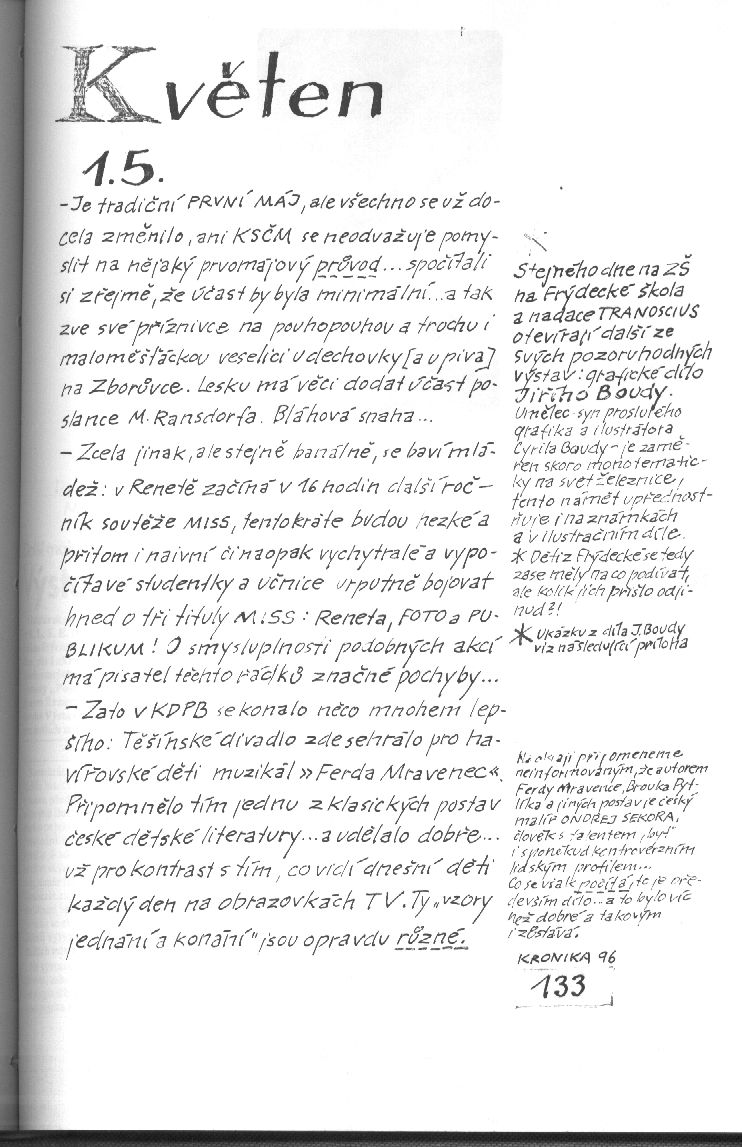 Květen
1.5.
-Je tradiční PRVNÍ MÁJ, ale všechno se už do-
cela změnilo, ani KSČM se neodvažuje pomy-
slit na nějaký prvomájový průvod... spočítali
si zřejmě, že účast by byla minimální...a tak
zve své příznivce na pouhopouhou a trochu i
maloměšťáckou veselici u dechovky [a u piva]
na Zborůvce. Lesku má věci dodat účast po-
slance M. Ransdorfa. Bláhová snaha...
- Zcela jinak, ale stejně banálně, se baví mlá-
dež: v Renetě začíná v 16 hodin další roč-
ník soutěže MISS, tentokráte budou hezké a
přitom i naivní či naopak vychytralé a vypo-
čítavé studentky a učnice urputně bojovat
hned o tři tituly MISS: Reneta, FOTO a PU-
BLIKUM! O smysluplnosti podobných akcí
má pisatel těchto řádků značné pochyby...
- Zato v KDPB se konalo něco mnohem lep-
šího: Těšínské divadlo zde sehrálo pro ha-
vířovské děti muzikál »Ferda Mravenec«.
Připomnělo tím jednu z klasických postav
české dětské literatury...a udělalo dobře...
už pro kontrast s tím, co vidí dnešní děti
každý den na obrazovkách TV. Ty „vzory
jednání a konání" jsou opravdu různé.
Stejného dne na ZŠ
na Frýdecké škola
a nadace TRANOSCIUS
otevírají další ze
svých pozoruhodných
výstav: grafické dílo
Jiřího Boudy.
Umělec-syn proslulého
grafika a ilustrátora
Cyrila Boudy - je zamě-
řen skoro monotematic-
ky na svět železnice,
tento námět upřednost-
ňuje i na známkách
a v ilustračním díle.
* Děti z Frýdecké se tedy
zase měly na co podívat,
ale kolik jich přišlo odji-
nud?!
* Ukázku z díla J. Boudy
viz následující příloha
Na okraji připomeneme
neinformovaným, že autorem
Ferdy Mravence, Brouka Pyt-
líka a jiných postav je český
malíř ONDŘEJ SEKORA,
člověk s talentem „byť"
i s poněkud kontroverzním
lidským profilem...
Co se však počítá, to je pře-
devším dílo...a to bylo víc
než dobré a takovým
i zůstává.
KRONIKA 96
133